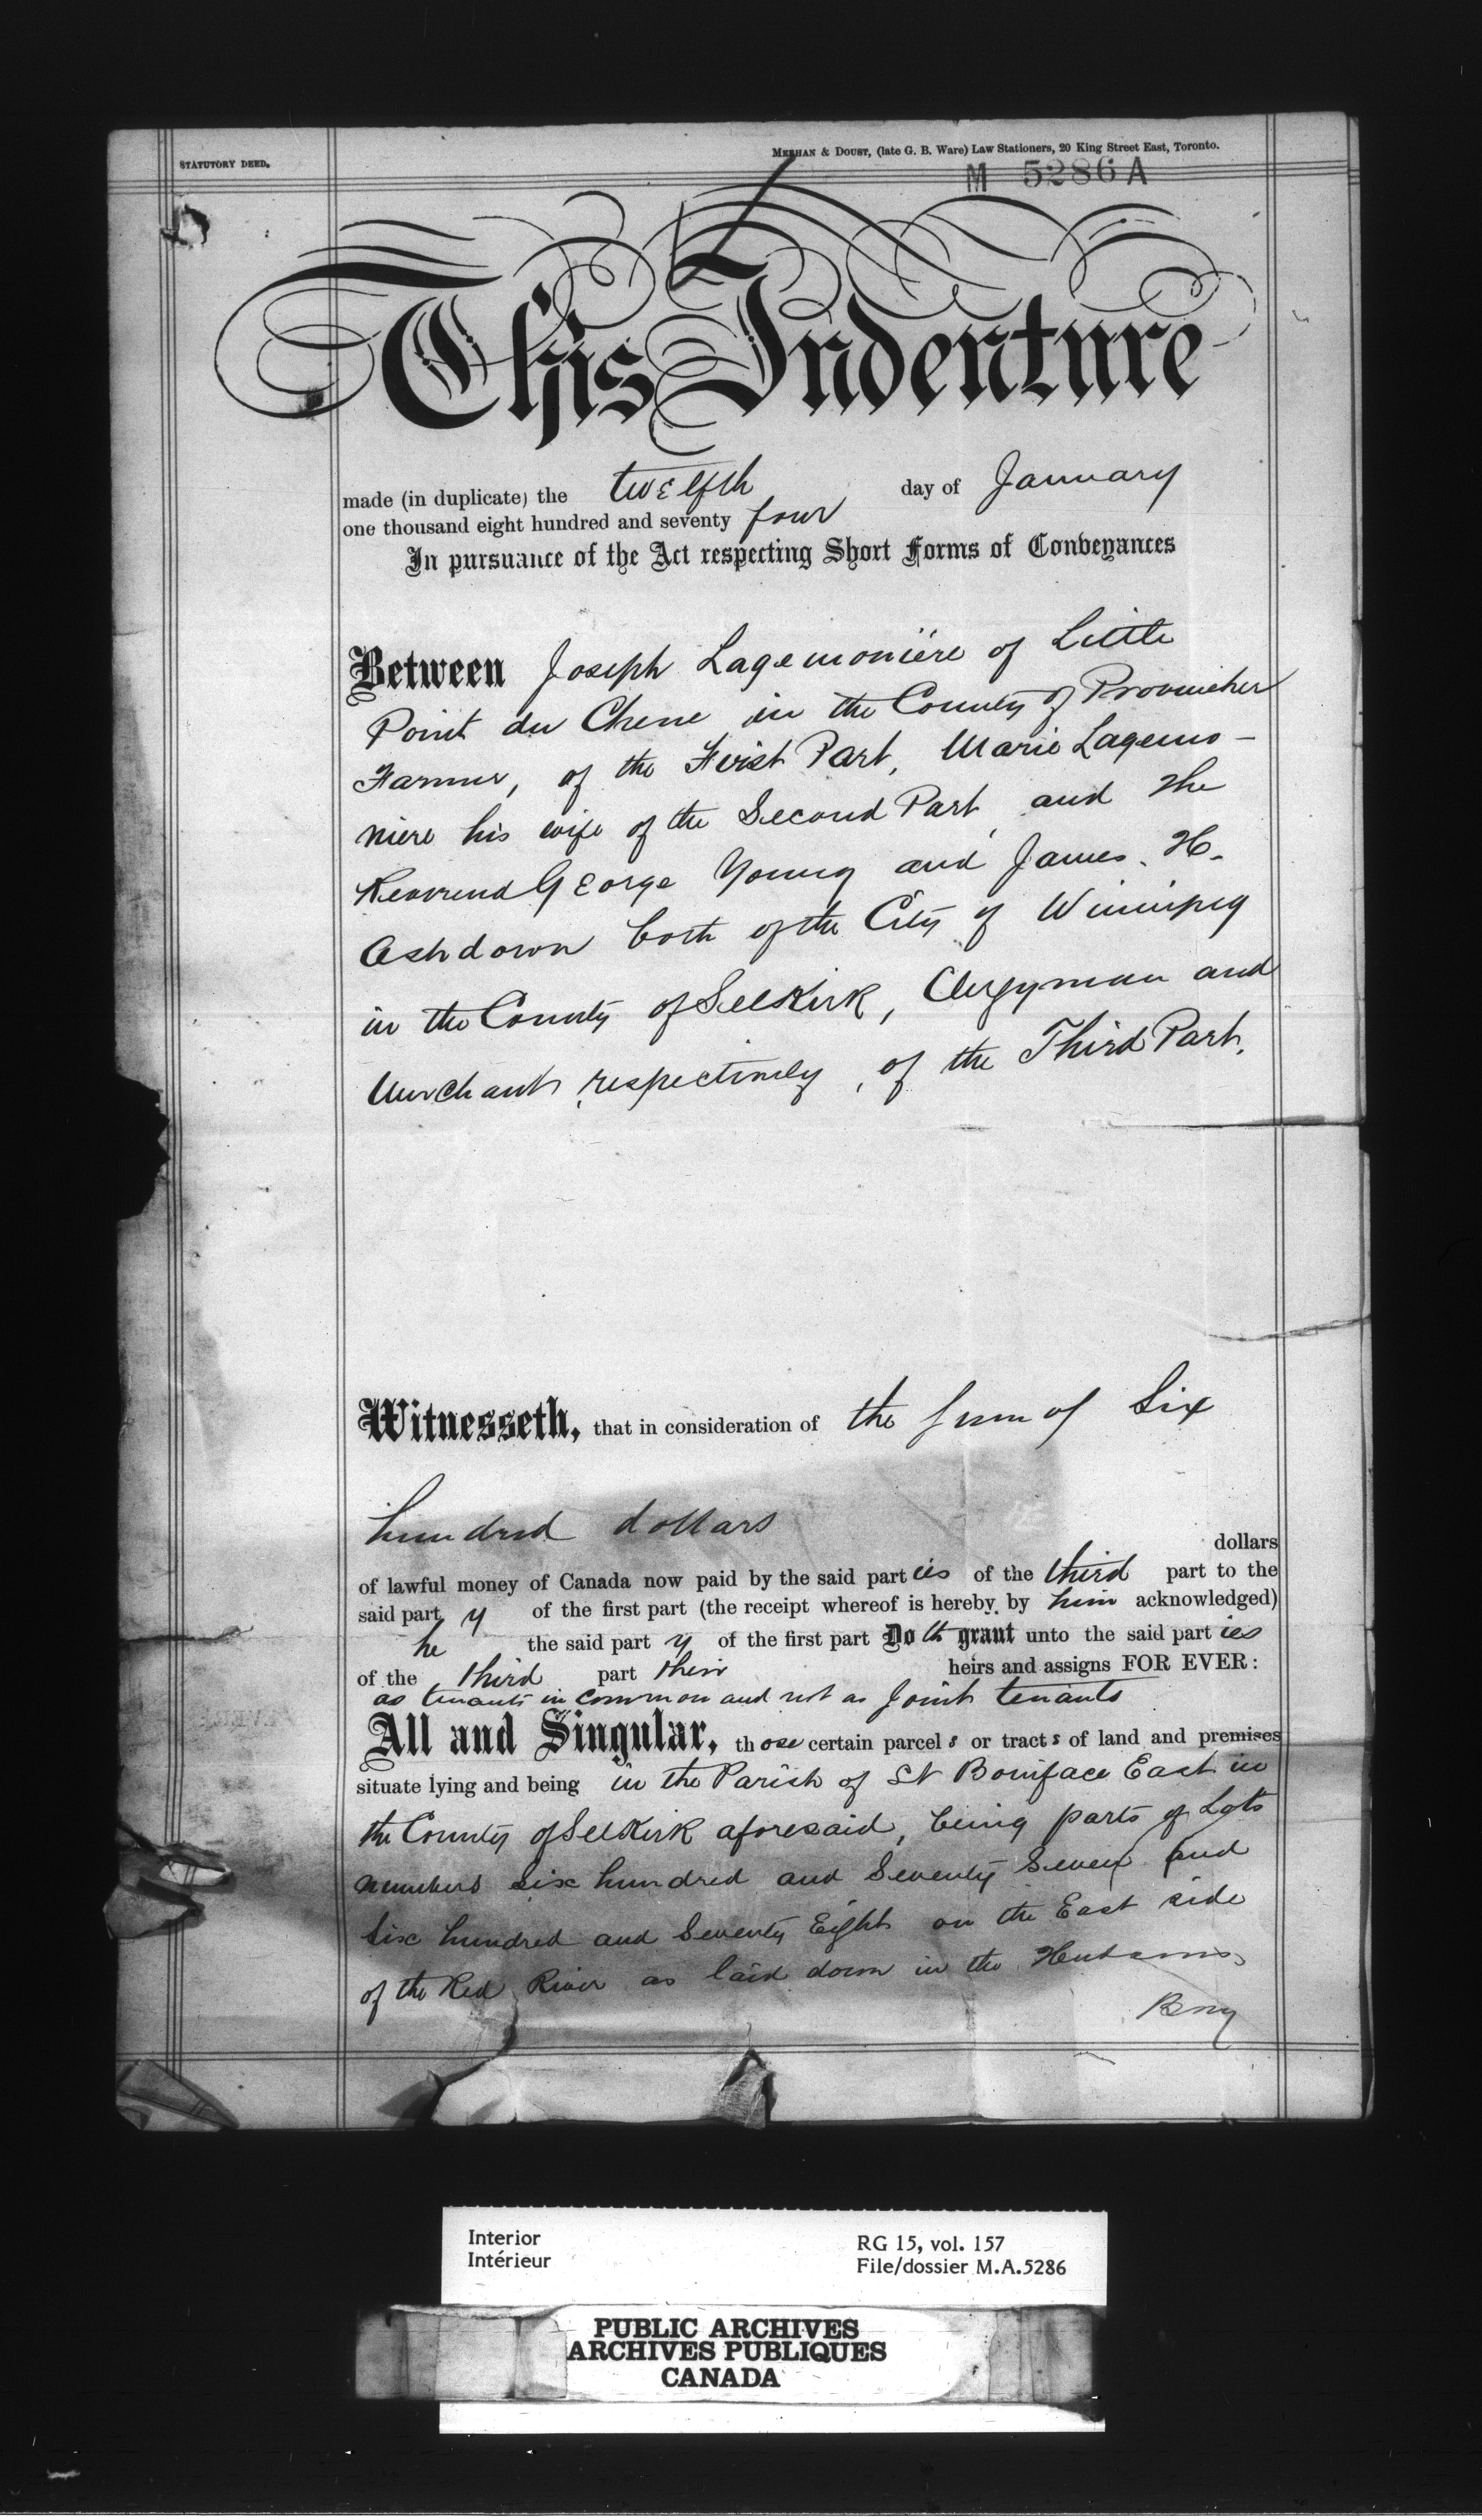 STATUTORY DEED.
MEEHAN & DOUST, (late G. B. Ware) Law Stationers, 20 King Street East, Toronto.
M 5286 A
This Indenture
made (in duplicate) the twelfth day of January
one thousand eight hundred and seventy four
In pursuance of the Act respecting Short Forms of Conveyances
Between Joseph Lagemonière of Little
Point du Chene in the County of Provencher
Farmer, of the First Part, Marie Lagemo-
niere his wife of the Second Part, and The
Reverend George Young and James. H.
Ashdown both of the City of Winnipeg
in the County of Selkirk, Clergyman and
Merchant respectively, of the Third Part.
Witnesseth, that in consideration of the sum of Six
hundred dollars
dollars
of lawful money of Canada now paid by the said parties of the third part to the
said party of the first part (the receipt whereof is hereby by him acknowledged)
he the said party of the first part Doth grant unto the said parties
of the third part their heirs and assigns FOR EVER:
as tenants in common and not as Joint tenants
All and Singular, those certain parcels or tracts of land and premises
situate lying and being in the Parish of St Boniface East in
the County of Selkirk aforesaid, being parts of Lots
numbers six hundred and Seventy Seven and
Six hundred and Seventy Eight on the East side
of the Red River as laid down in the Hudsons
Bay
Interior
Intérieur
RG 15, vol. 157
File/dossier M.A.5286
PUBLIC ARCHIVES
ARCHIVES PUBLIQUES
CANADA